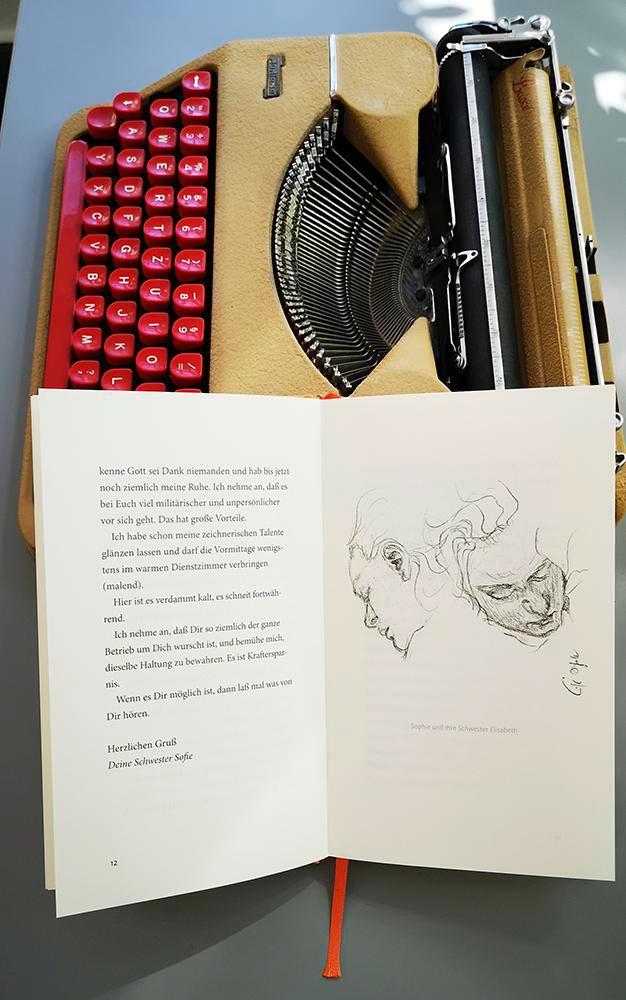 kenne Gott sei Dank niemanden und hab bis jetzt
noch ziemlich meine Ruhe. Ich nehme an, daß es
bei Euch viel militärischer und unpersönlicher
vor sich geht. Das hat große Vorteile.
Ich habe schon meine zeichnerischen Talente
glänzen lassen und darf die Vormittage wenigs-
tens im warmen Dienstzimmer verbringen
(malend).
Hier ist es verdammt kalt, es schneit fortwäh-
rend.
Ich nehme an, daß Dir so ziemlich der ganze
Betrieb um Dich wurscht ist, und bemühe mich,
dieselbe Haltung zu bewahren. Es ist Kraftersparnis-
nis.
Wenn es Dir möglich ist, dann laß mal was von
Dir hören.
Herzlichen Gruß
Deine Schwester Sofie
12
Sophie und ihre Schwester Elisabeth
Q W E R T Z U I O
A S D F G H J K L
Y X C V B N M ?